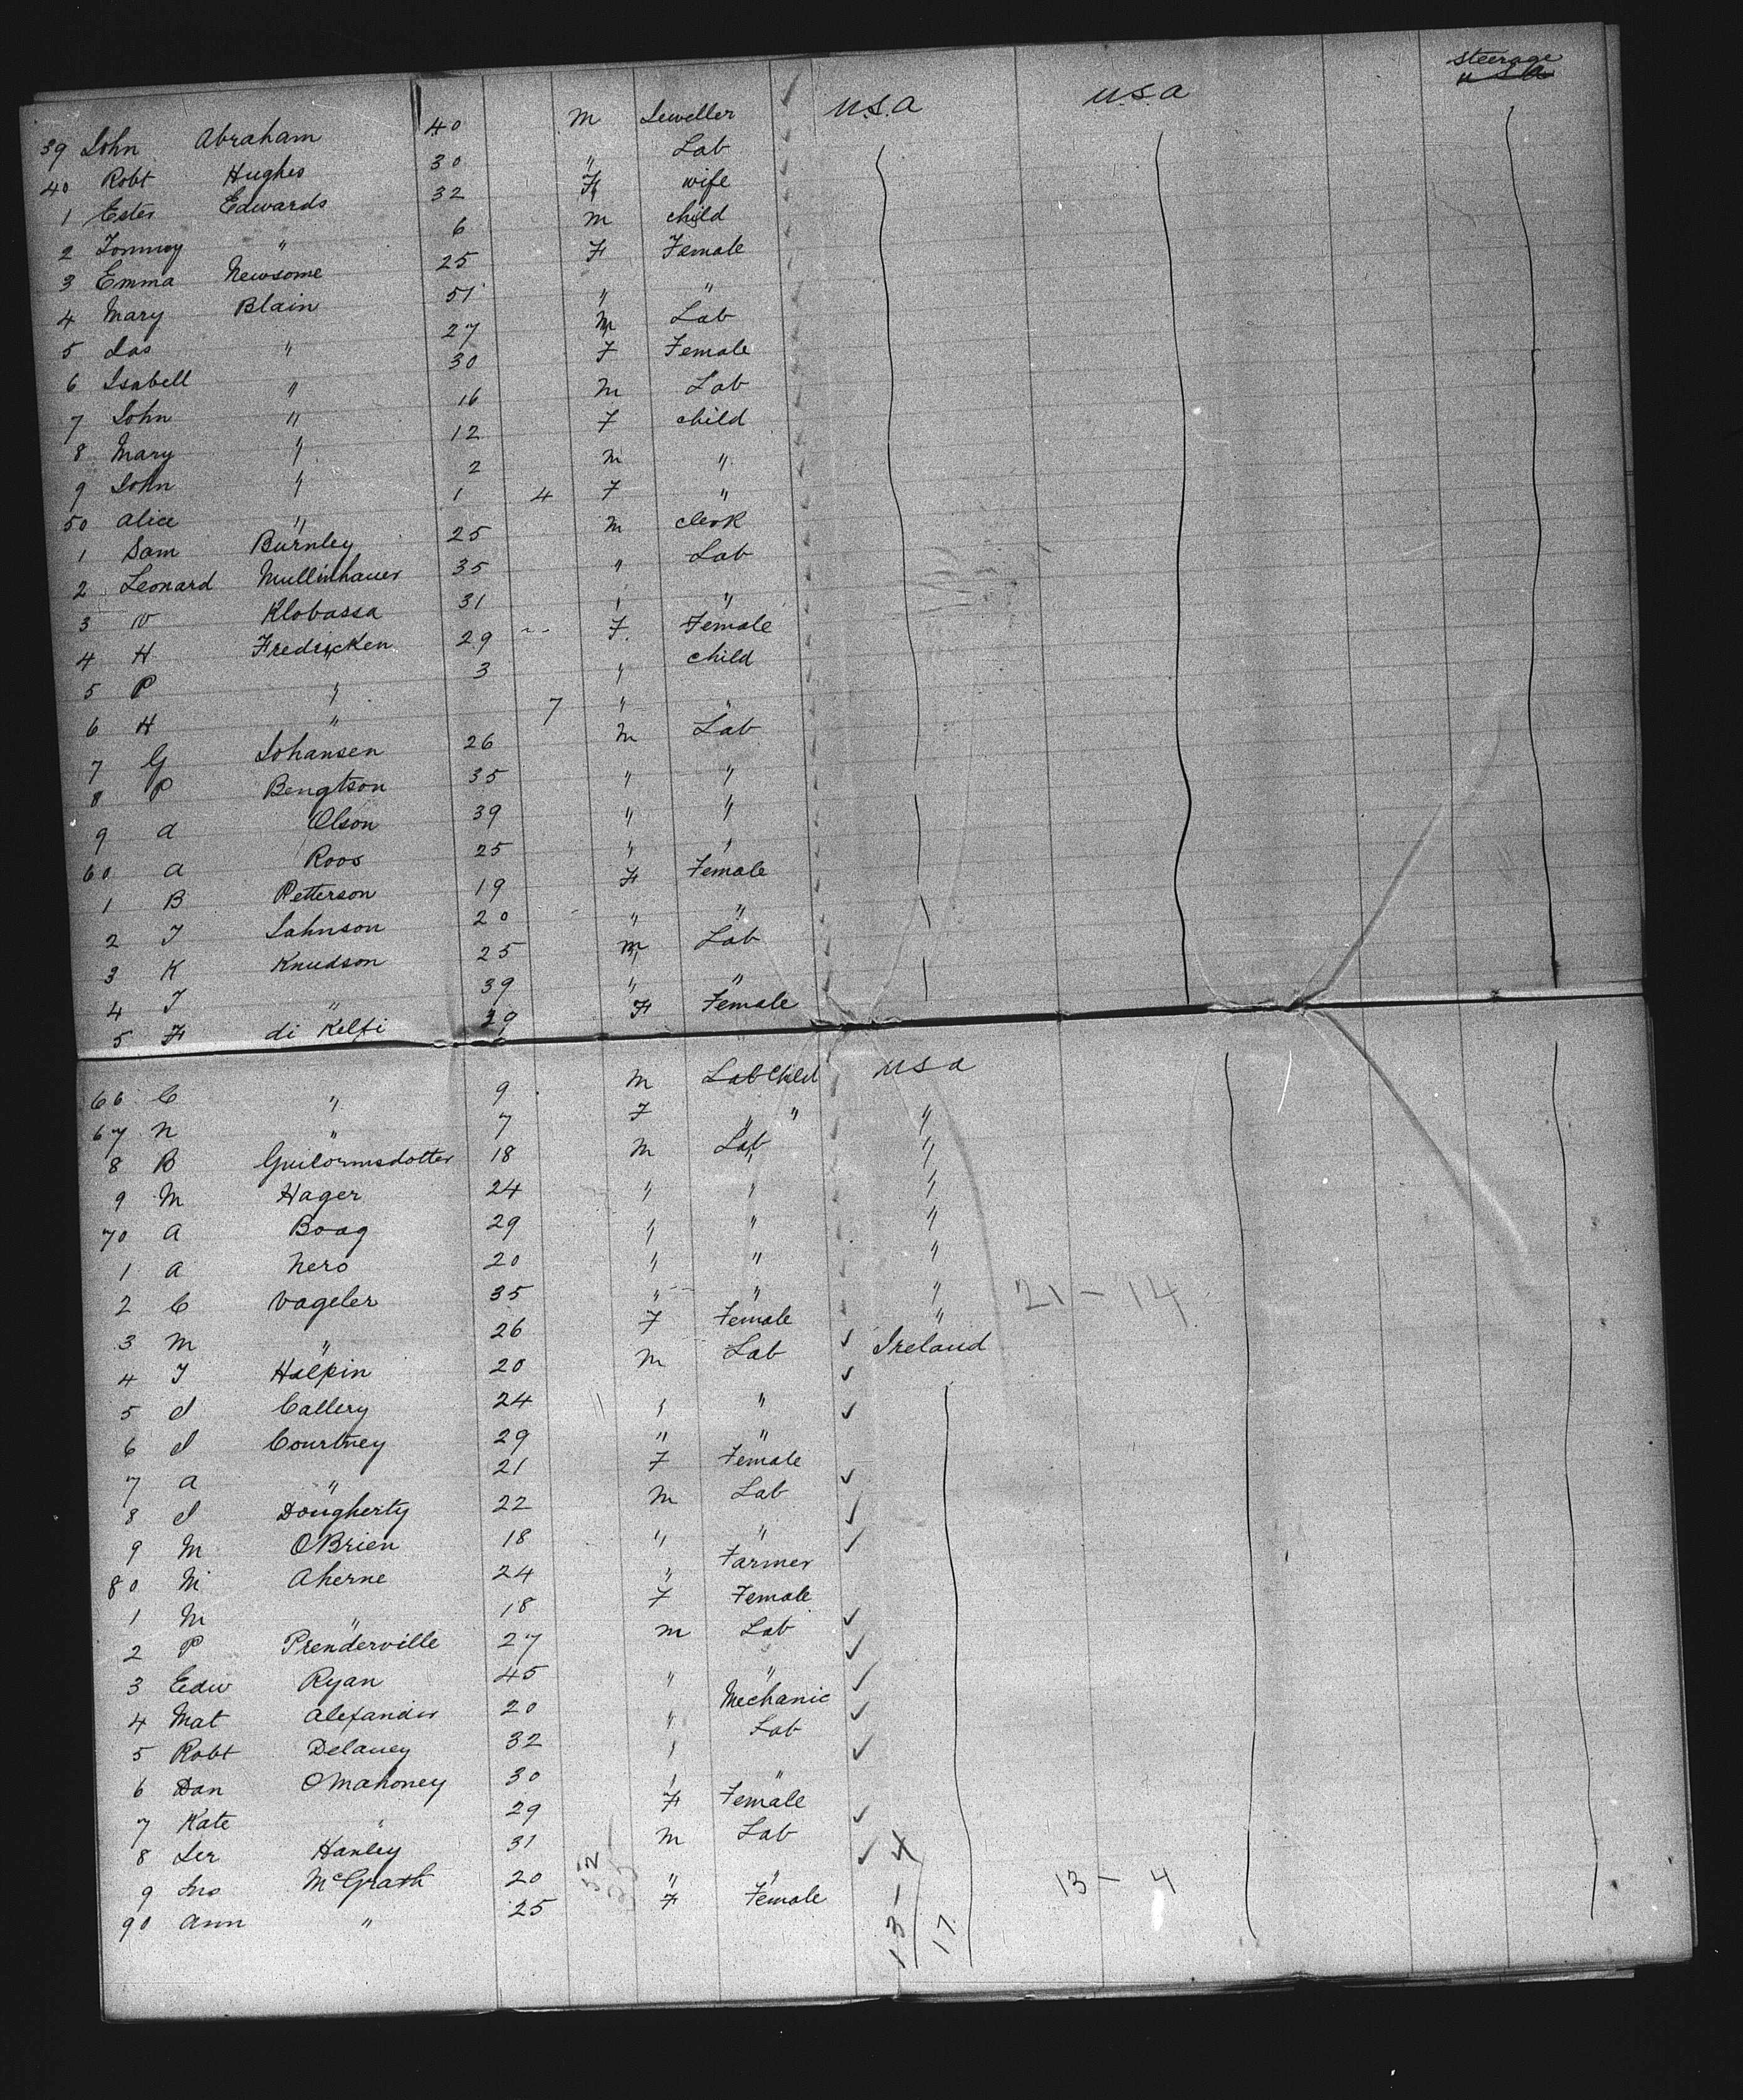 steerage
39 John Abraham 40 m Jeweller U.S.A U.S.A
40 Robt Hughes 30 " Lab
1 Ester Edwards 32 F wife
2 Tommy " 6 m child
3 Emma Newsome 25 F Female
4 Mary Blain 51 " "
5 Jas " 27 m Lab
6 Isabell " 30 F Female
7 John " 16 m Lab
8 Mary " 12 F child
9 John " 2 m "
50 Alice " 1 4 F "
1 Sam Burnley 25 m clerk
2 Leonard Mullinhauer 35 " Lab
3 W Klobassa 31 " "
4 H Fredricken 29 F. Female
5 P " 3 " child
6 H " 7 " "
7 G Johansen 26 m Lab
8 P Bengtson 35 " "
9 A Olson 39 " "
60 A Roos 25 " "
1 B Petterson 19 F Female
2 J Johnson 20 " "
3 K Knudson 25 m Lab
4 J " 39 " "
5 F di Kelfi 39 F Female
66 C " 9 m Lab Child U S A
67 N " 7 F " " "
8 B Guilormsdotter 18 m Lab "
9 M Hager 24 " " "
70 A Boag 29 " " "
1 A Nero 20 " " "
2 C Vageler 35 " " " 21 - 14
3 M " 26 F Female "
4 J Halpin 20 m Lab Ireland
5 J Callery 24 " "
6 J Courtney 29 " "
7 A " 21 F Female
8 J Dougherty 22 m Lab
9 M O'Brien 18 " "
80 M Aherne 24 " Farmer
1 M " 18 F Female
2 P Prenderville 27 m Lab
3 Edw Ryan 45 " "
4 Mat Alexander 20 " Mechanic
5 Robt Delaney 32 " Lab
6 Dan OMahoney 30 " "
7 Kate " 29 F Female
8 Jer Hanley 31 m Lab
9 Jno McGrath 20 " " 13 - 4
90 Ann " 25 F Female
13 - 4
17